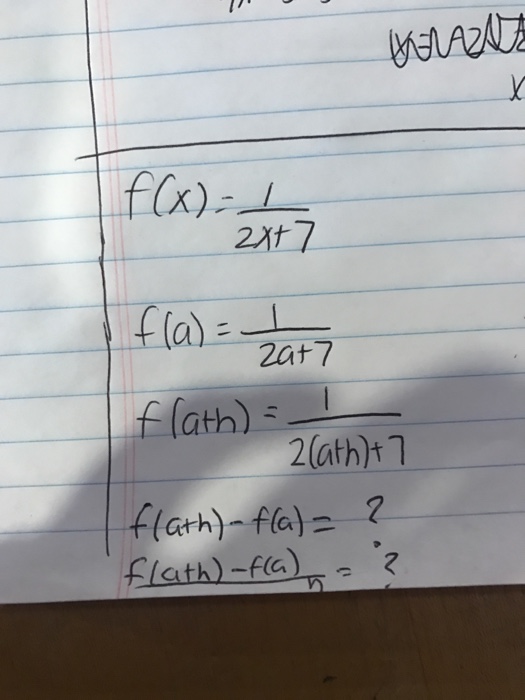 x
f(x) = 1/(2x+7)
f(a) = 1/(2a+7)
f(a+h) = 1/(2(a+h)+7)
f(a+h) - f(a) = ?
(f(a+h) - f(a))/h = ?